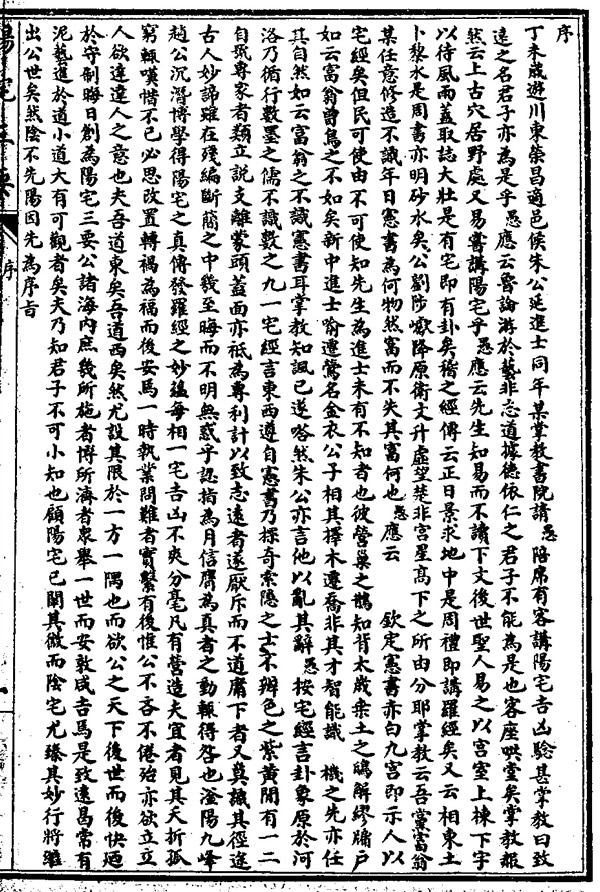 序
丁未歲遊川東榮昌適邑侯朱公延進士同年某掌教書院請愚陪席有客講陽宅吉凶驗甚掌教曰致
遠之名君子亦為是乎愚應云魯論游於藝非忘道據德依仁之君子不能為是也客座哄堂矣掌教報
然云上古穴居野處又易嘗講陽宅乎愚應云先生知易而不讀下文後世聖人易之以宮室上棟下宇
以待風雨蓋取諸大壯是有宅即有卦矣稽之經傳云正日景求地中是周禮即講羅經矣又云相東土
卜黎水是周書亦明砂水矣公劉陟巘降原衛文升虛望楚非宮星高下之所由分耶掌教云吾富翁
某任意修造不識年日憲書為何物然富而不失其富何也愚應云 欽定憲書亦曰九宮即示人以
宅經矣但民可使由不可使知先生為進士未有不知者也彼營巢之鵲知背太歲桑土之鴟解繆牖戶
如云富翁曾鳥之不如矣新中進士喬遷鶯名金衣公子相其擇木遷喬非其才智能識 機之先亦任
其自然如云富翁之不識憲書耳掌教知諷已遂嗒然朱公亦言他以亂其辭愚按宅經言卦象原於河
洛乃循行數墨之儒不識數之九一宅經言東西遵自憲書乃探奇索隱之士不辨色之紫黃間有一二
自眾專家者類立說支離蒙頭蓋面亦祗為專利計以致志遠者遂厭斥而不道庸下者又莫識其徑途
古人妙諦雖在殘編斷簡之中幾至晦而不明無惑乎認指為月信膺為真者之動輒得咎也滏陽九峰
趙公沉潛博學得陽宅之真傳發羅經之妙蘊每相一宅吉凶不爽分毫凡有營造夫宜者見其夭折孤
窮輒嘆惜不已必思改置轉禍為福而後安焉一時執業問難者實繁有徒惟公不吝不倦殆亦欲立立
人欲達達人之意也夫吾道東矣吾道西矣然尤設其限於一方一隅也而欲公之天下後世而後快迺
於守制晦日創為陽宅三要公諸海內庶幾所施者博所濟者眾舉一世而安敦咸吉焉是致遠曷常有
泥藝進於道小道大有可觀者矣夫乃知君子不可小知也顧陽宅已闡其微而陰宅尤臻其妙行將繼
出公世矣然陰不先陽因先為序旨
陽宅三要
序